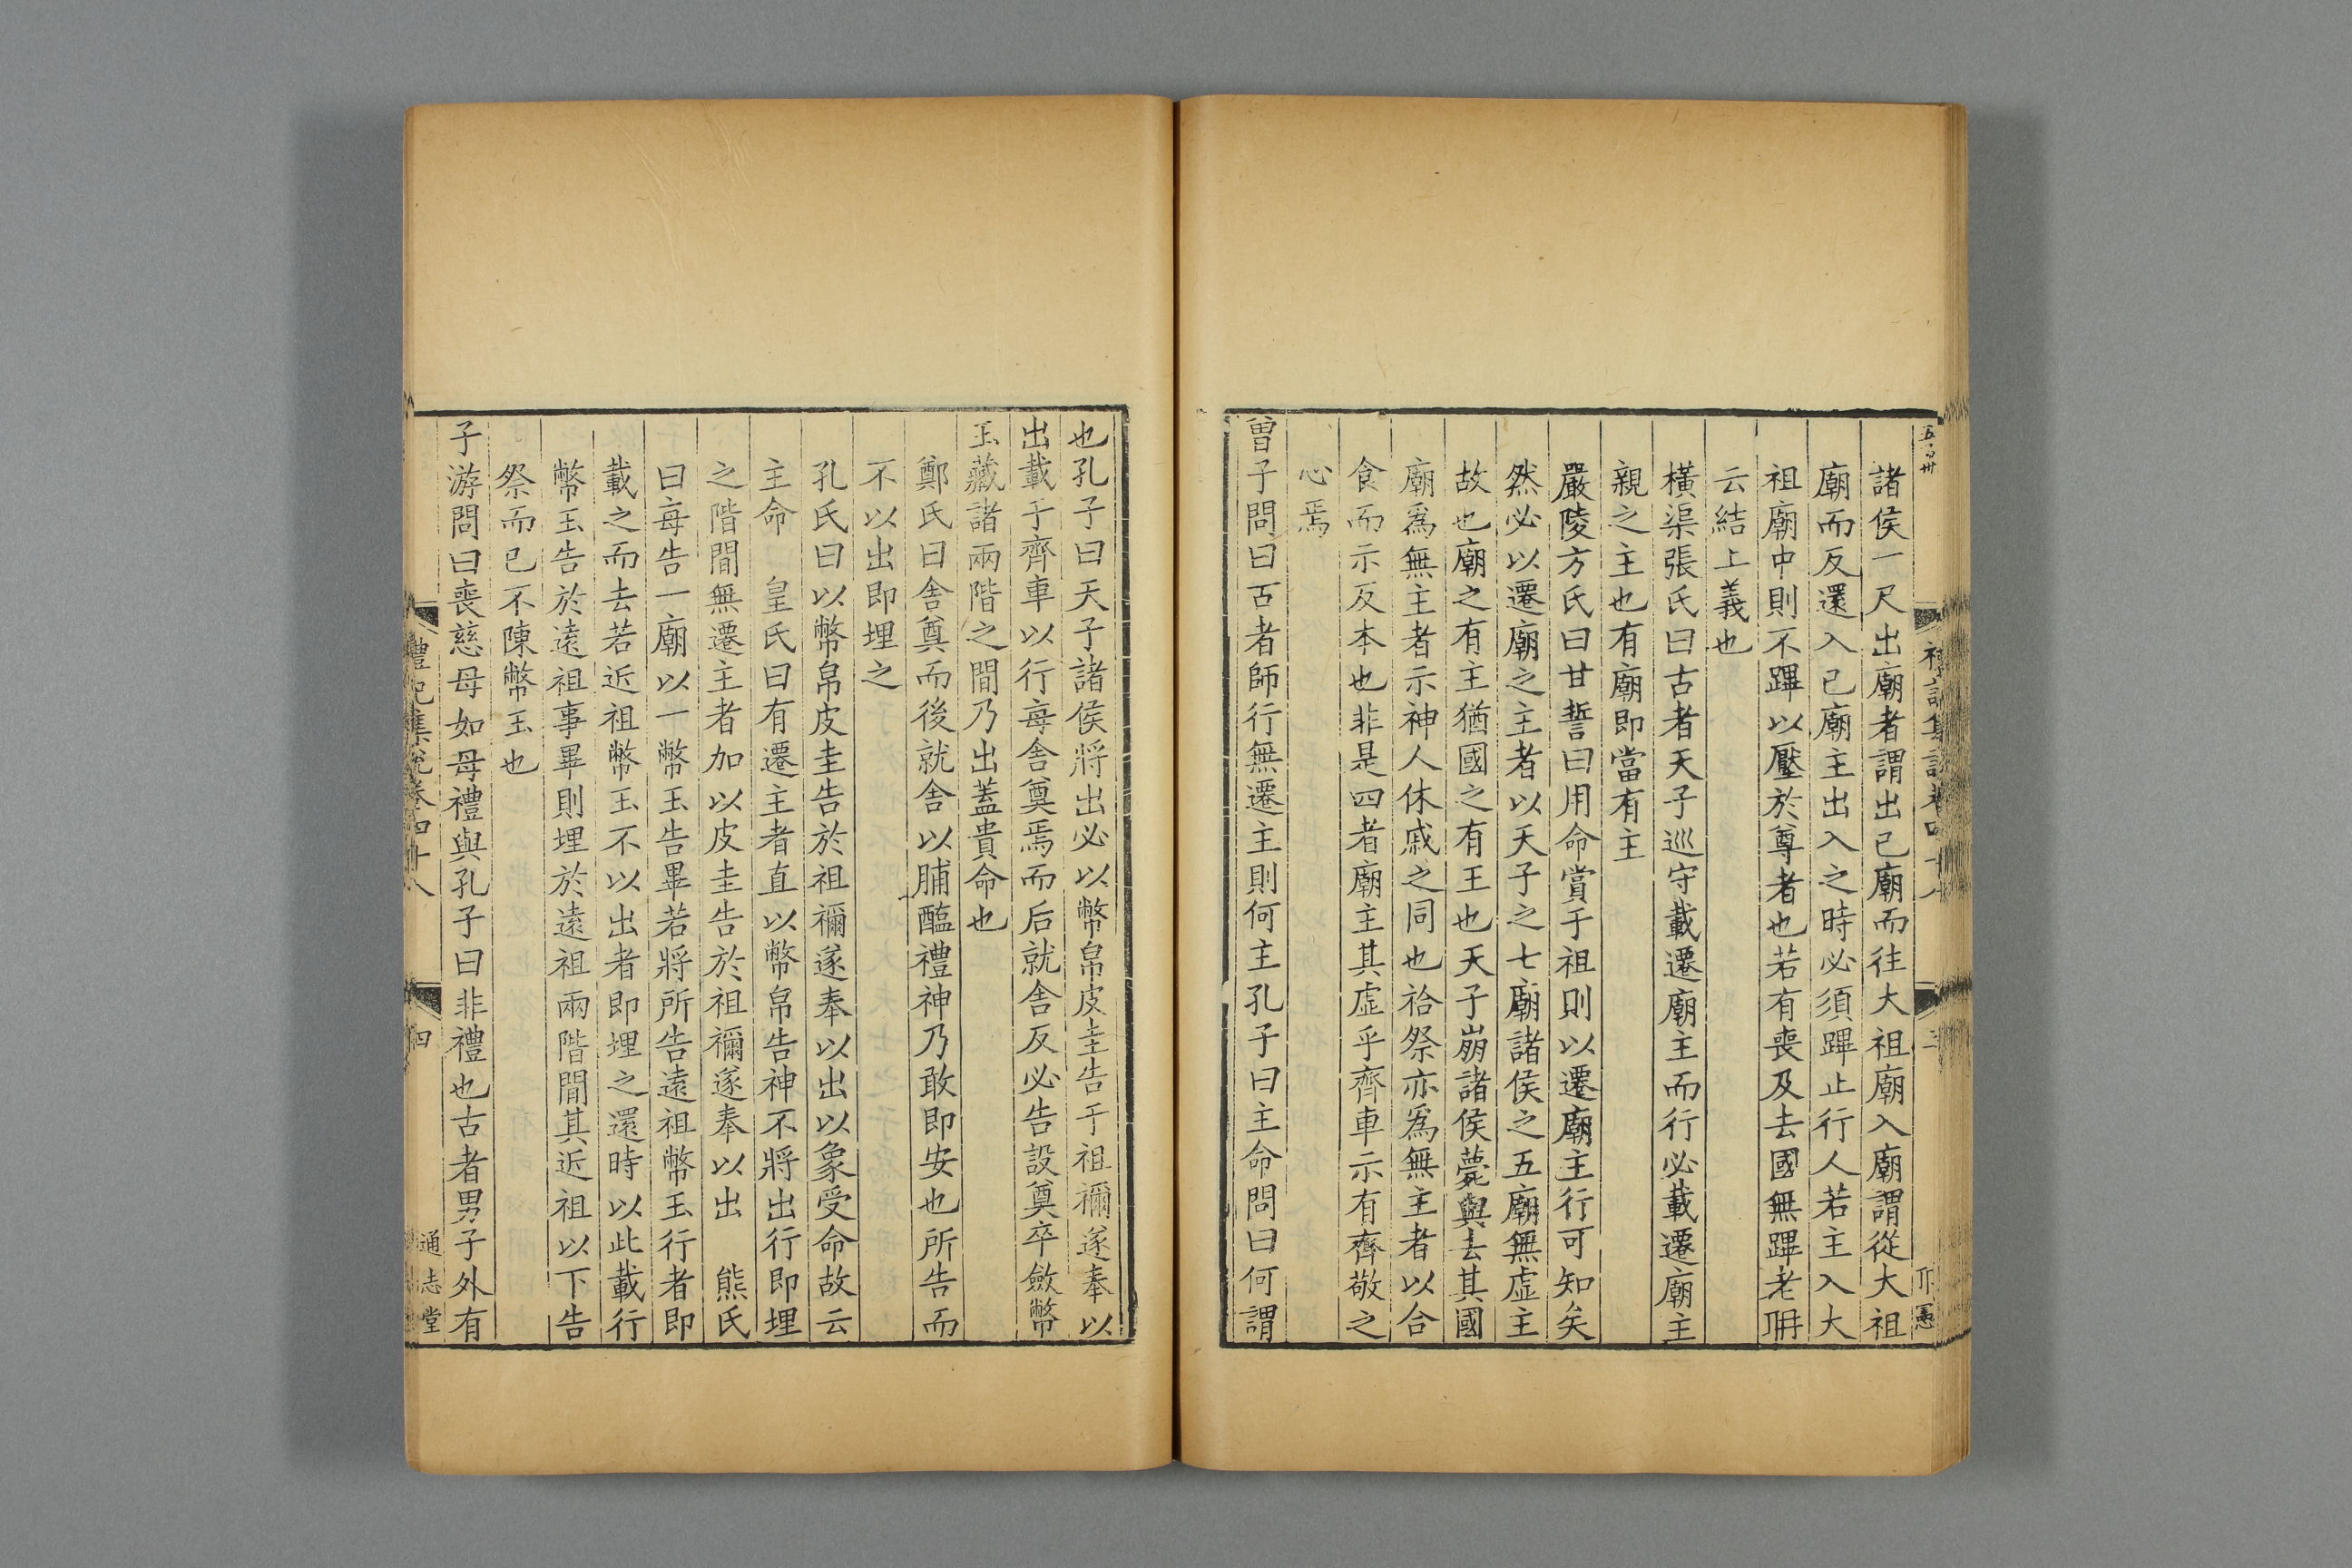 諸侯一尺出廟者謂出己廟而往大祖廟入廟謂從大祖
廟而反還入己廟主出入之時必須蹕止行人若主入大
祖廟中則不蹕以壓於尊者也若有喪及去國無蹕老耼
云結上義也
橫渠張氏曰古者天子巡守載遷廟主而行必載遷廟主
親之主也有廟即當有主
嚴陵方氏曰甘誓曰用命賞于祖則以遷廟主行可知矣
然必以遷廟之主者以天子之七廟諸侯之五廟無虛主
故也廟之有主猶國之有王也天子崩諸侯薨與去其國
廟爲無主者示神人休戚之同也祫祭亦爲無主者以合
食而示反本也非是四者廟主其虛乎齊車示有齊敬之
心焉
曾子問曰古者師行無遷主則何主孔子曰主命問曰何謂
也孔子曰天子諸侯將出必以幣帛皮圭告于祖禰遂奉以
出載于齊車以行每舍奠焉而后就舍反必告設奠卒斂幣
玉藏諸兩階之間乃出蓋貴命也
鄭氏曰舍奠而後就舍以脯醢禮神乃敢即安也所告而
不以出即埋之
孔氏曰以幣帛皮圭告於祖禰遂奉以出以象受命故云
主命 皇氏曰有遷主者直以幣帛告神不將出行即埋
之階間無遷主者加以皮圭告於祖禰遂奉以出 熊氏
曰每告一廟以一幣玉告畢若將所告遠祖幣玉行者即
載之而去若近祖幣玉不以出者即埋之還時以此載行
幣玉告於遠祖事畢則埋於遠祖兩階間其近祖以下告
祭而已不陳幣玉也
子游問曰喪慈母如母禮與孔子曰非禮也古者男子外有
禮記集說卷四十八 四 通志堂